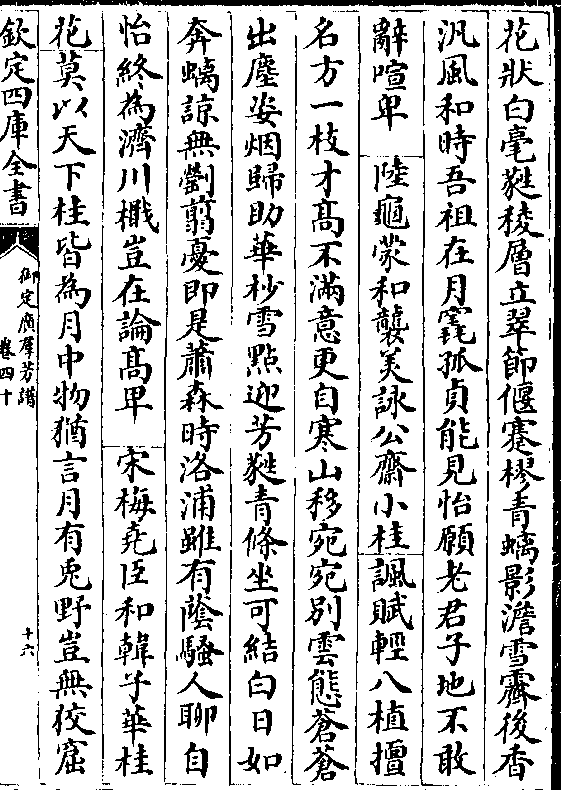 花狀白毫甤稜層立翠節偃蹇樛青螭影澹雪霽後香
汎風和時吾祖在月竁孤貞能見怡願老君子地不敢
辭喧卑　陸龜蒙和襲美詠公齋小桂　諷賦輕八植擅
名方一枝才高不滿意更自寒山移宛宛別雲態蒼蒼
出塵姿烟歸助華杪雪點迎芳甤青條坐可結白日如
奔螭諒無劚翦憂即是蕭森時洛浦雖有蔭騷人聊自
怡終為濟川檝豈在論高卑　宋梅堯臣和韓子華桂
花　莫以天下桂皆為月中物猶言月有兎野豈無狡窟
欽定四庫全書
御定廣羣芳譜
卷四十
十六